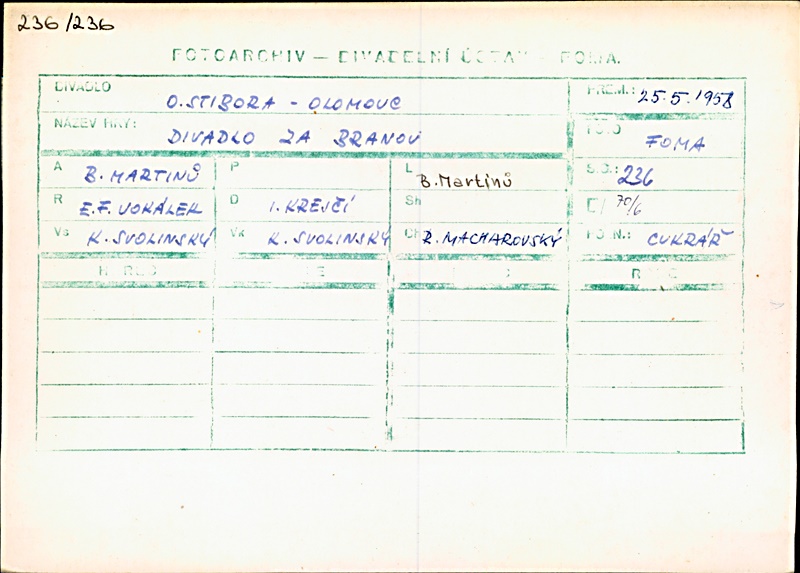 236/236
FOTOARCHIV – DIVADELNÍ ÚSTAV - FOMA.
DIVADLO O.STIBORA - OLOMOUC PREM.: 25.5.1958
NÁZEV HRY: DIVADLO ZA BRANOU FOTO FOMA
A B. MARTINŮ P L B. Martinů S.O.: 236
R E.F. VOKÁLEK D I. KREJČÍ Sh 70/6
Vs K. SVOLINSKÝ Vk K. SVOLINSKÝ Ch R. MACHAROVSKÝ POZN.: CUKRÁŘ
HEREC ROLE HEREC ROLE